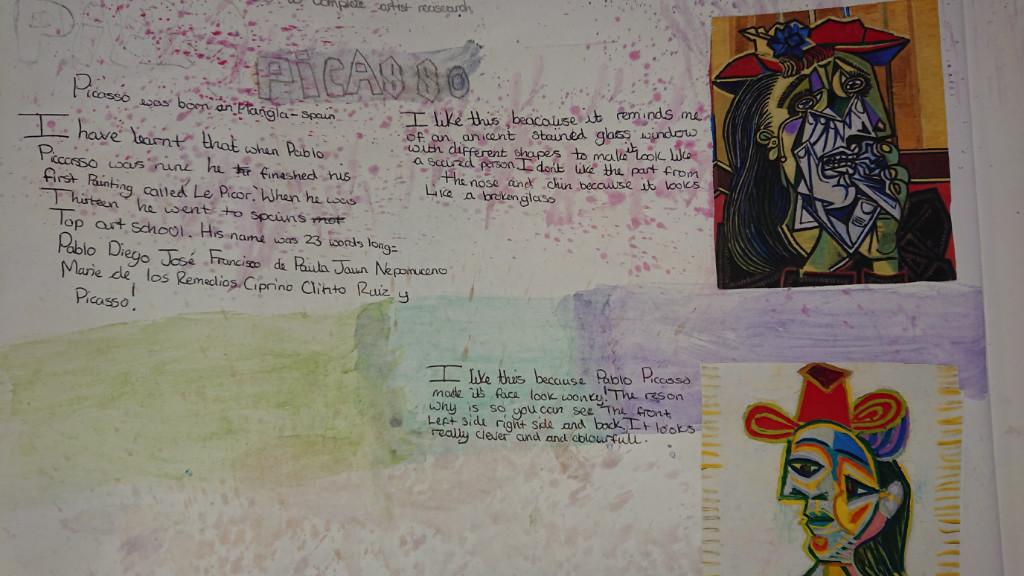 to complete artist reasearch
PiCASSO
Picasso was born in Mangla-spain
I have learnt that when Pablo
Piccasso was nine he fineshed his
first Painting called Le Picor. When he was
Thirteen he went to spains
Top art school. His name was 23 words long=
Pablo Diego José Francisco de Paula Jaun Nepomuceno
Marie de los Remedios Ciprino Clinto Ruiz y
Picasso!
I like this beacause it reminds me
of an anicent stained glass window
with different shapes to make it look like
a scared person. I dont like the part from
the nose and chin because it looks
like a broken glass
I like this because Pablo Picasso
made it's face look wonky! The reson
why is so you can see The front
Left side right side and back. It looks
really clever and and colourfull.